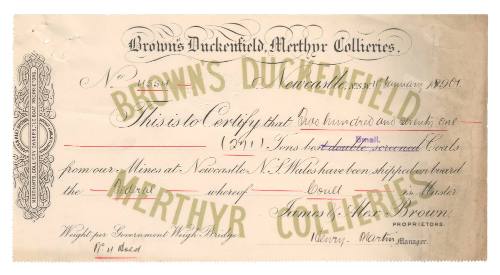 Brown's Duckenfield, Merthyr Collieries.
No Newcastle, N.S.W. January 1901
BROWN'S DUCKENFIELD
This is to Certify that Two hundred and seventy one
(271) Tons best double screened Small. Coals
from our Mines at Newcastle N.S. Wales have been shipped on board
the Federal whereof Coull is Master
MERTHYR COLLIERIES
James & Alexr Brown
PROPRIETORS.
Weight per Government Weigh-Bridge
Henry Martin Manager.